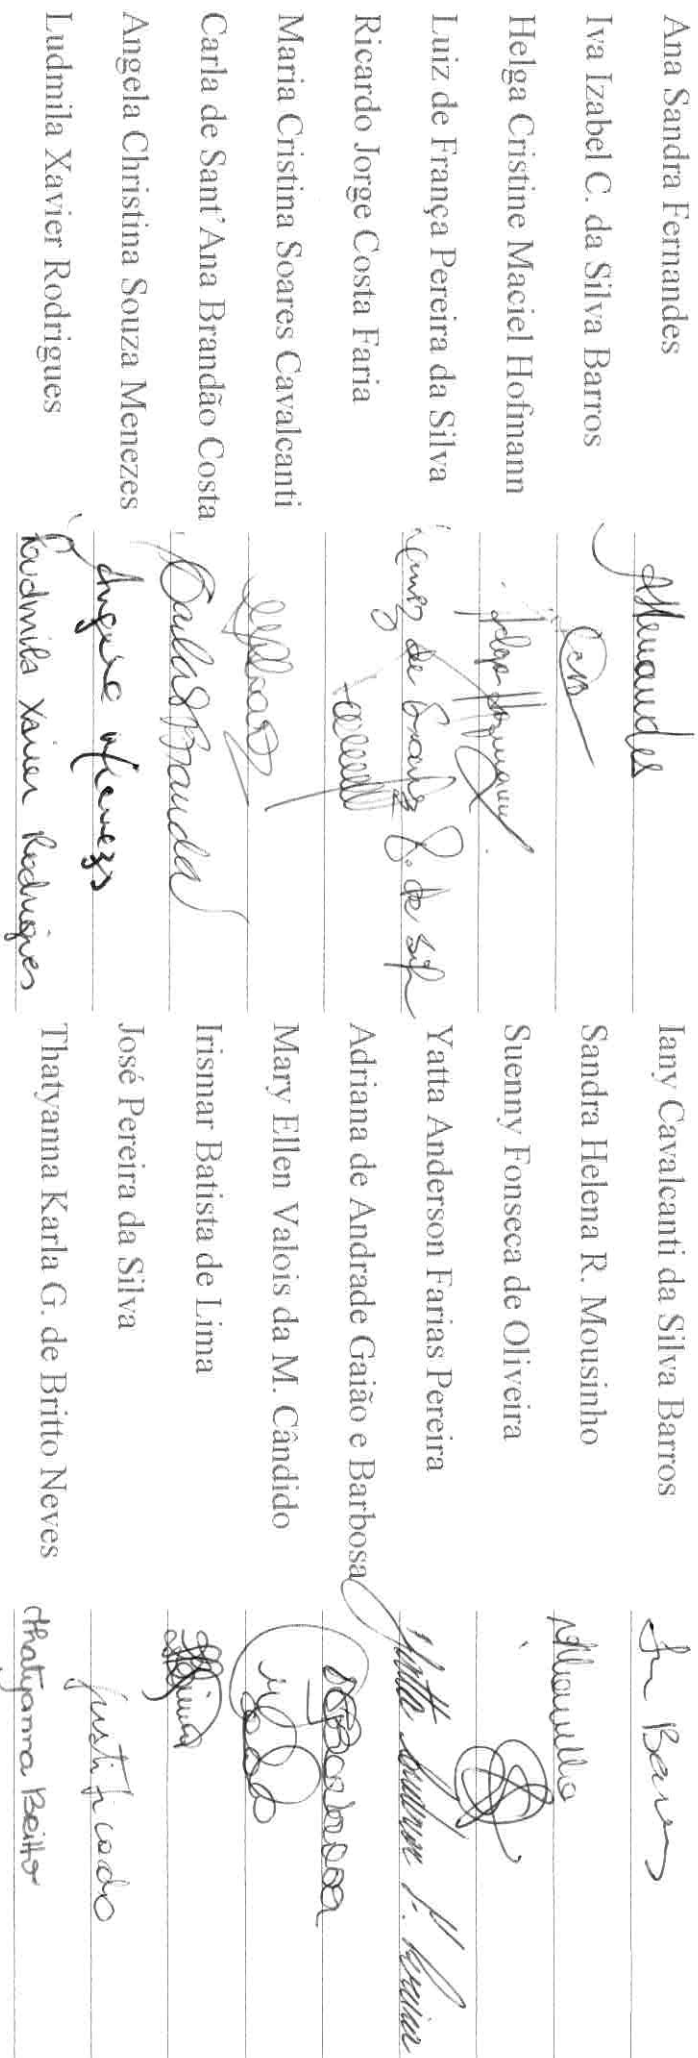 Ana Sandra Fernandes AFernandes
Iva Izabel C. da Silva Barros
Helga Cristine Maciel Hofmann
Luiz de França Pereira da Silva Luiz de França P. da Silva
Ricardo Jorge Costa Faria
Maria Cristina Soares Cavalcanti
Carla de Sant' Ana Brandão Costa
Angela Christina Souza Menezes Angela Menezes
Ludmila Xavier Rodrigues Ludmila Xavier Rodrigues
Iany Cavalcanti da Silva Barros
Sandra Helena R. Mousinho
Suenny Fonseca de Oliveira
Yatta Anderson Farias Pereira Yatta Anderson F. Pereira
Adriana de Andrade Gaião e Barbosa
Mary Ellen Valois da M. Cândido
Irismar Batista de Lima
José Pereira da Silva justificado
Thatyanna Karla G. de Britto Neves Thatyanna Britto